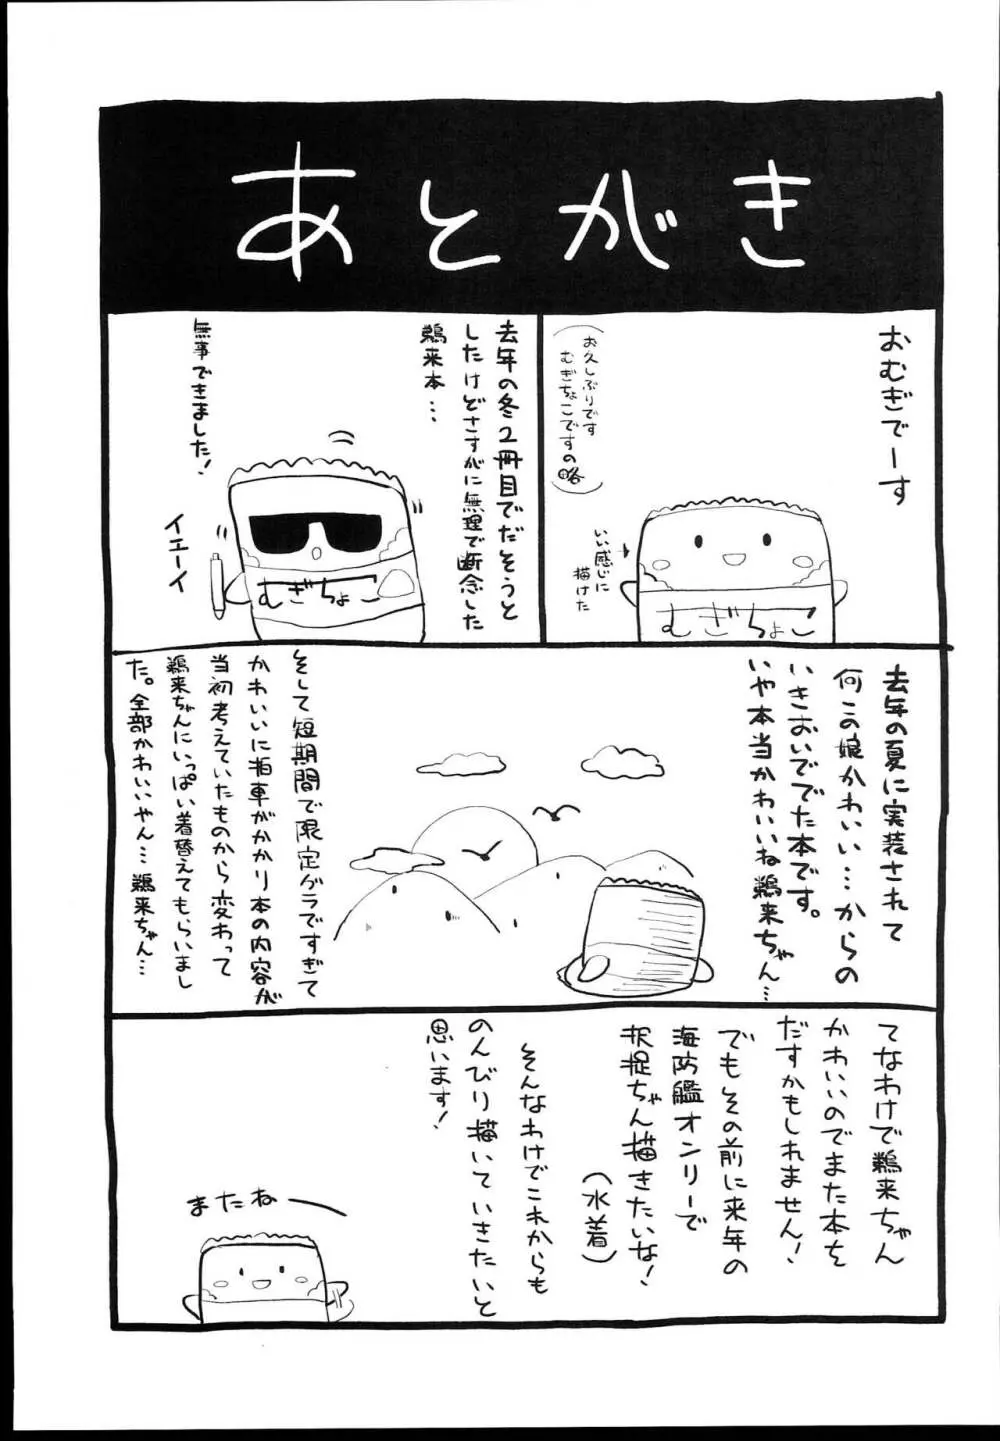 あとがき
おむぎでーす
(お久しぶりです
むぎちょこですの略)
いい感じに
描けた
むぎちょこ
去年の冬2冊目でだそうと
したけどさすがに無理で断念した
鵜来本…
無事できました!
イエーイ
むぎちょこ
去年の夏に実装されて
何この娘かわいい…からの
いきおいででた本です。
いや本当かわいいね鵜来ちゃん…
そして短期間で限定グラですぎて
かわいいに拍車がかかり本の内容が
当初考えていたものから変わって
鵜来ちゃんにいっぱい着替えてもらいまし
た。全部かわいいやん…鵜来ちゃん…
てなわけで鵜来ちゃん
かわいいのでまた本を
だすかもしれません!
でもその前に来年の
海防艦オンリーで
択捉ちゃん描きたいな!
(水着)
そんなわけでこれからも
のんびり描いていきたいと
思います!
またねー